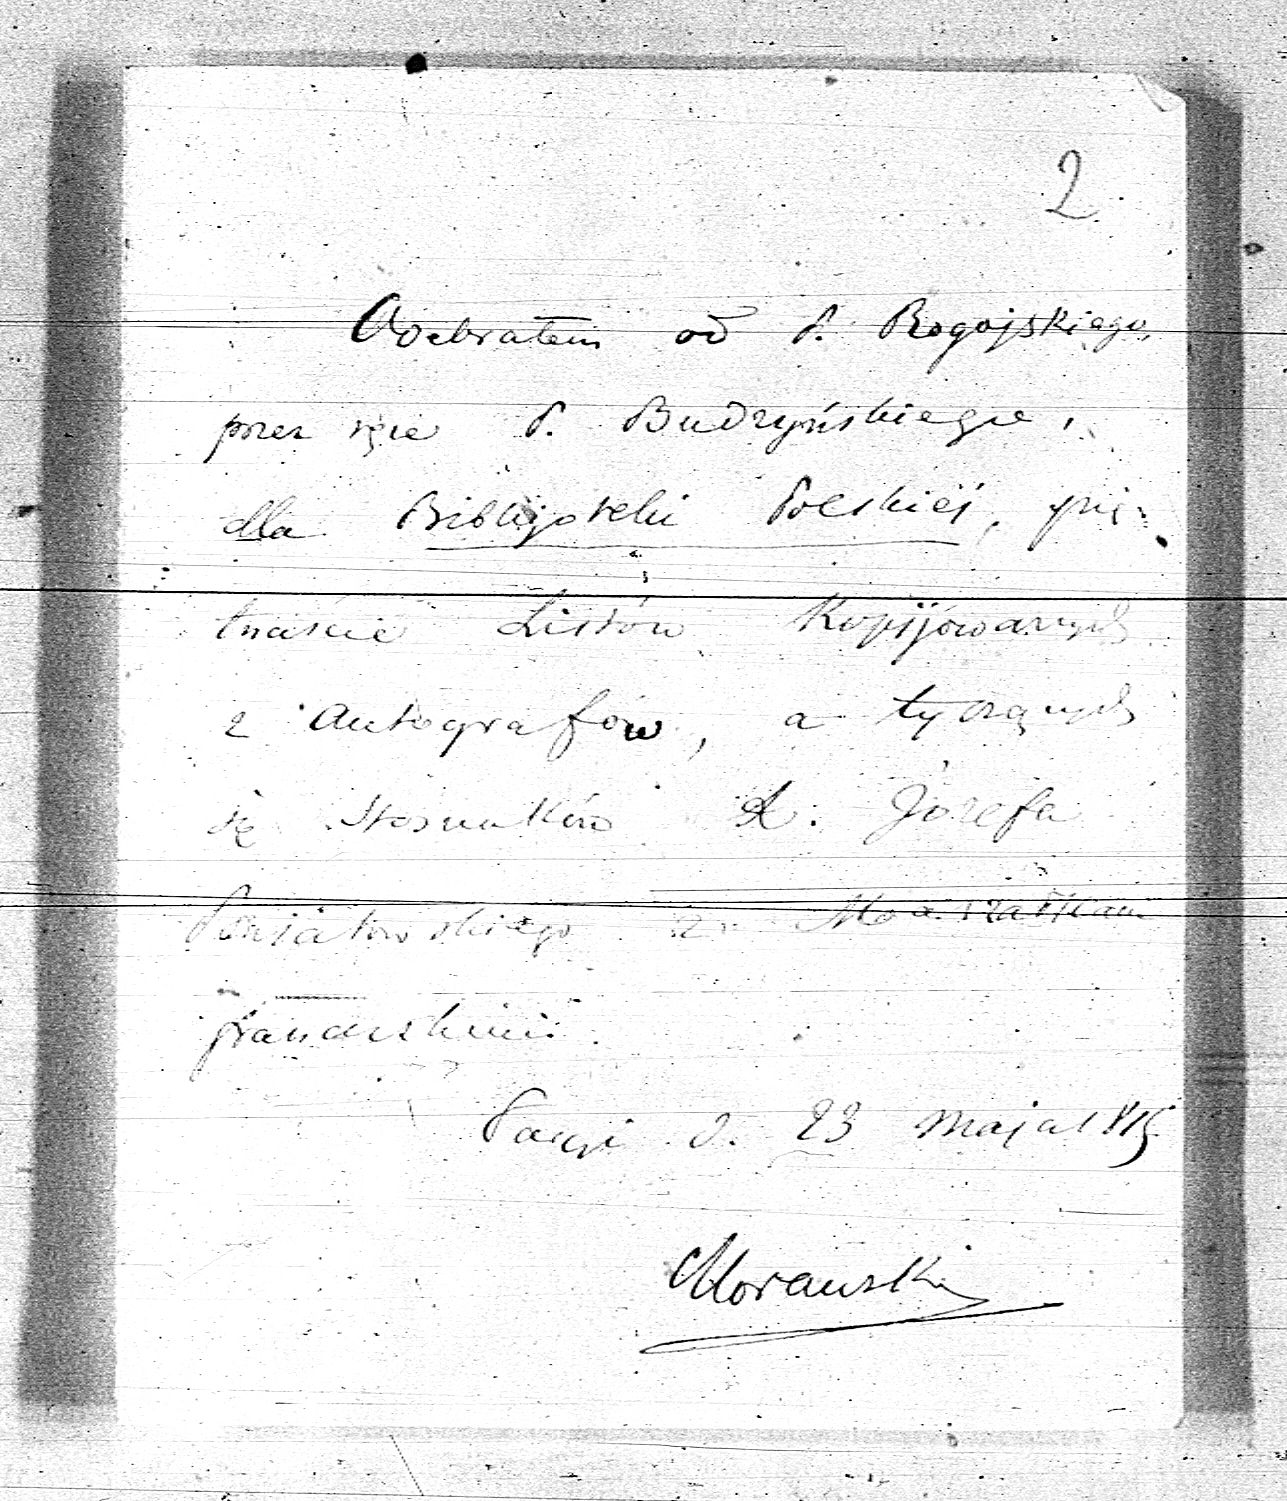 2
Odebrałem od P. Rogojskiego,
przez ręce P. Budzyńskiego,
dla Biblijoteki Polskiéj, pię-
tnaście Listów Kopijowanych
z autografów, a tyczących
się Stosunków X. Józefa
Poniatowskiego z Marszałkami
francuskimi.
Paryż d. 23 maja
Morawski